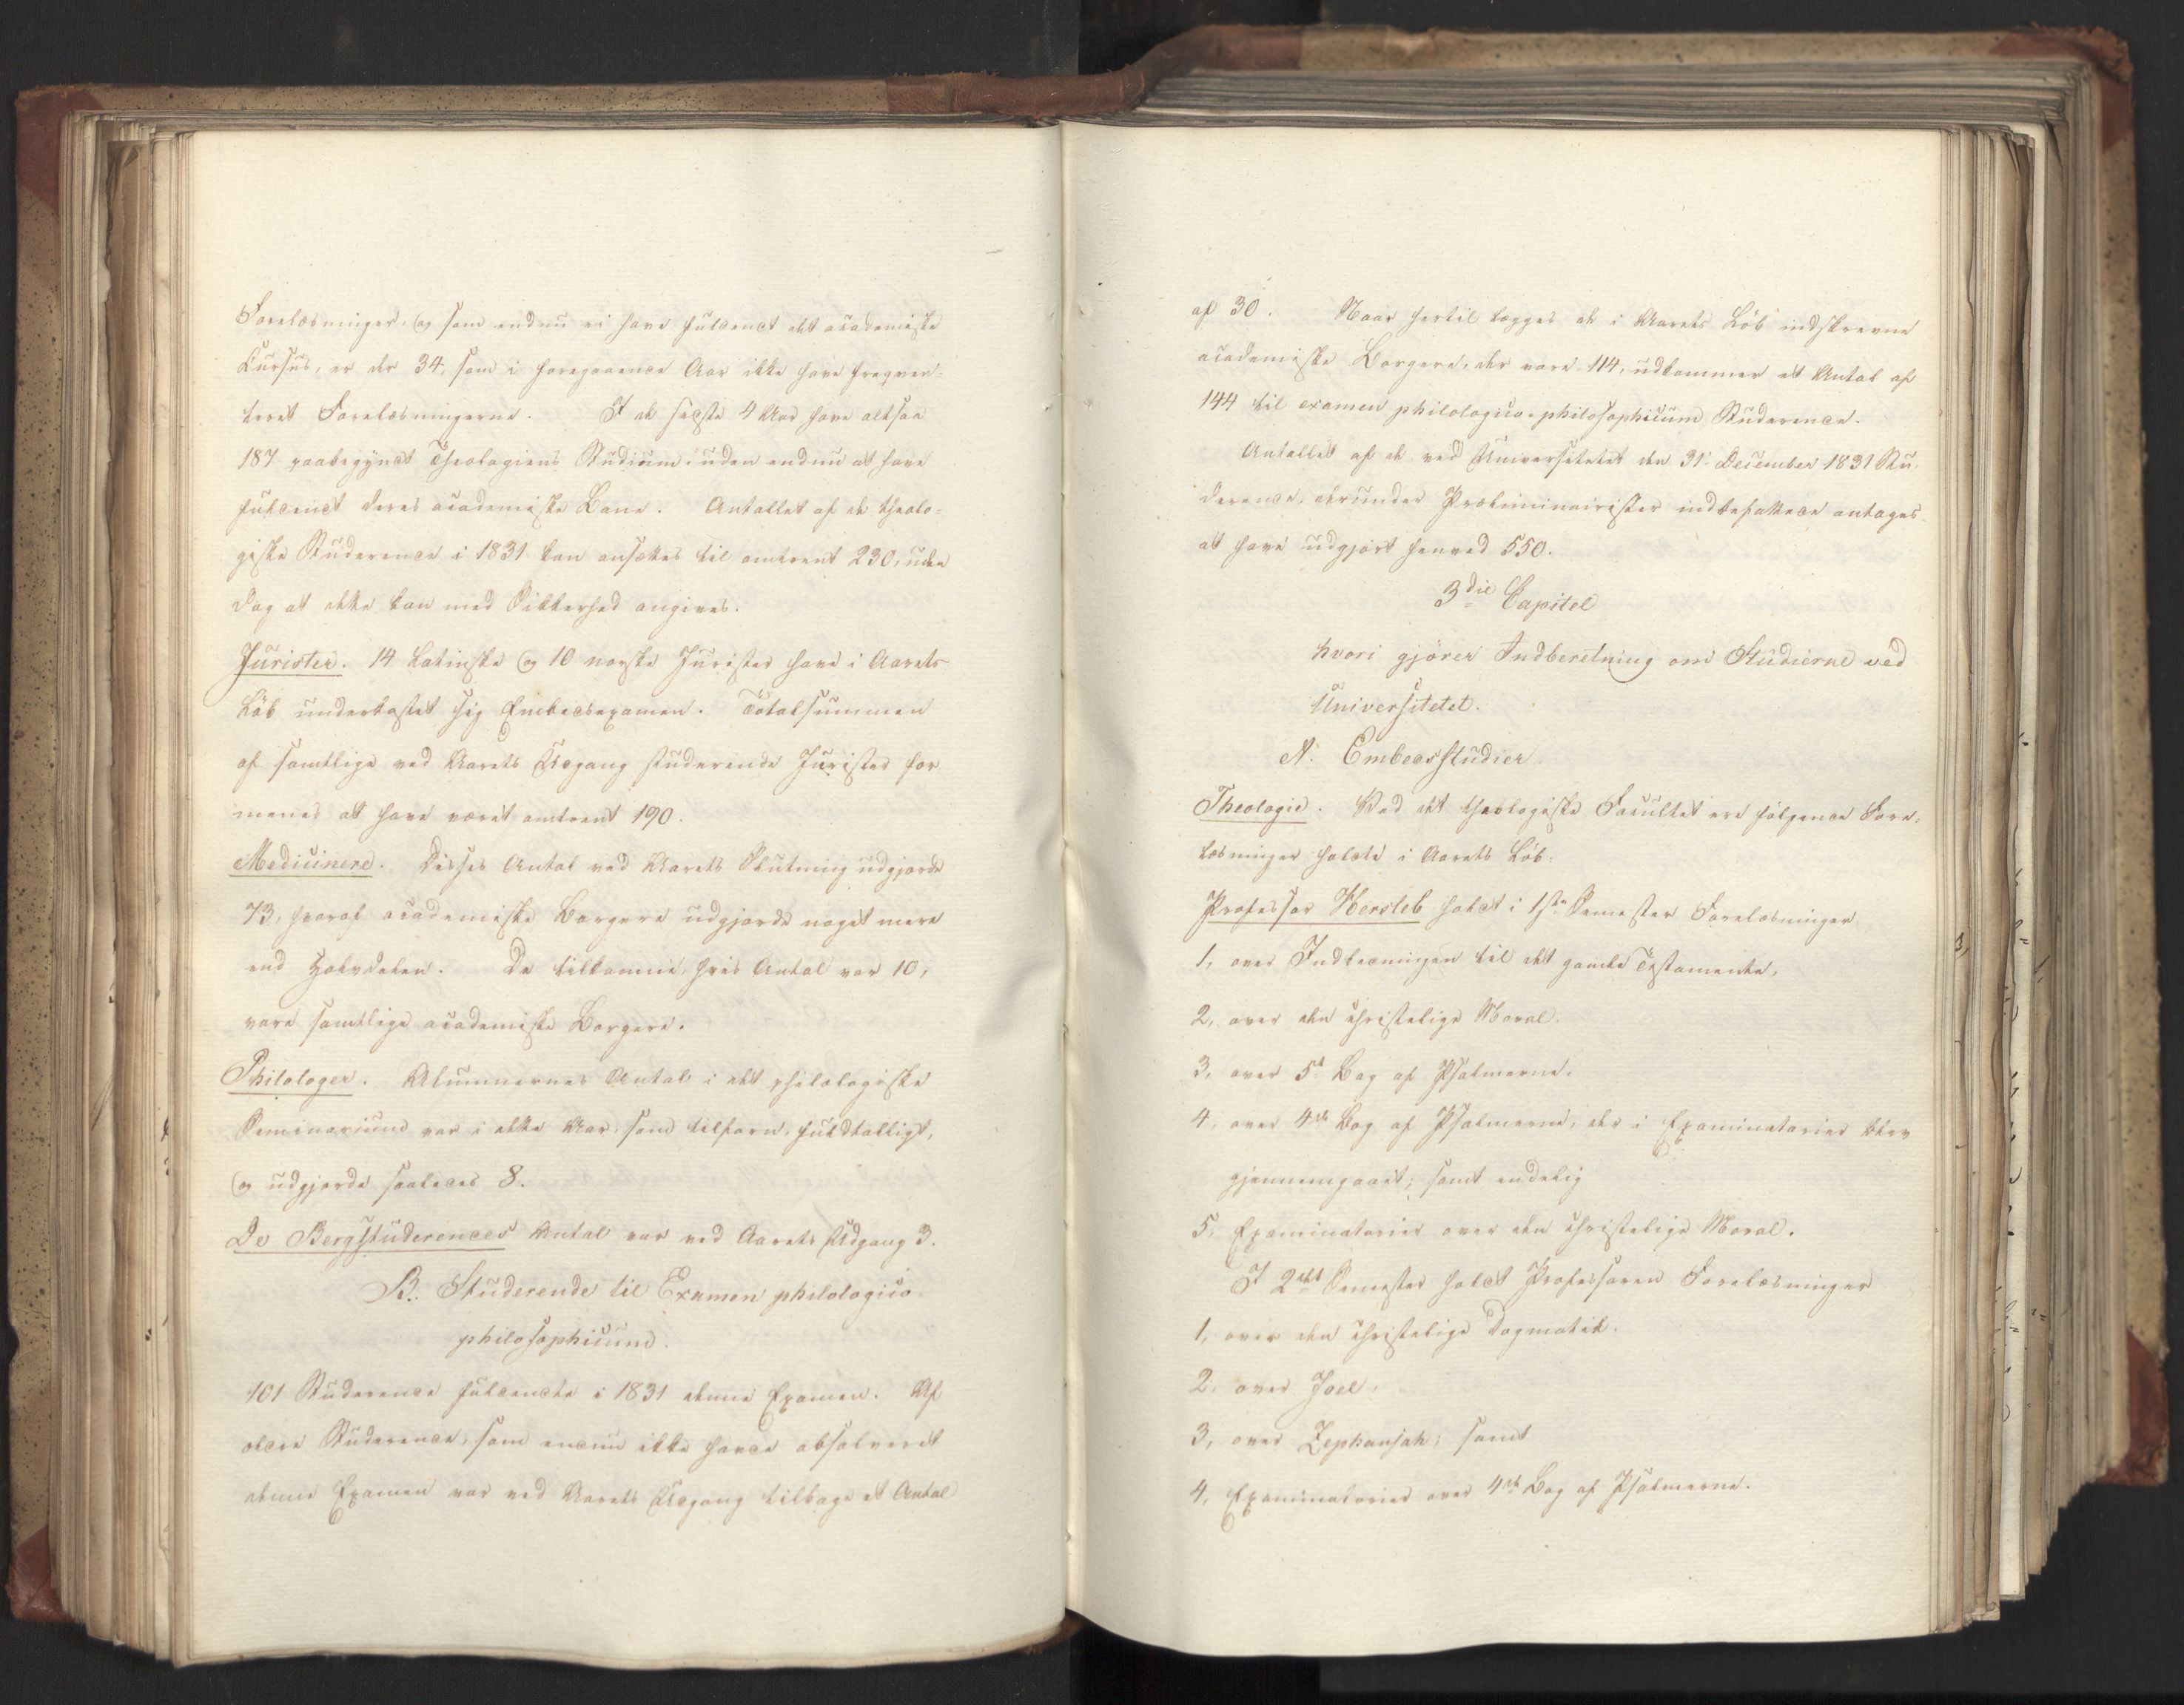 Forelæsninger, og som endnu ei have fuldendt det academiske
Cursus, er der 34, som i foregaaende Aar ikke have freqven-
teret Forelæsningerne. I de sidste 4 Aar have altsaa
187 paabegyndt Theologiens Studium uden endnu at have
fuldendt deres academiske Bane. Antallet af de theolo-
giske Studerende i 1831 kan ansættes til omtrent 230, uden
dog at dette kan med Sikkerhed angives.
Jurister. 14 Latinske og 10 norske Jurister have i Aarets
Løb underkastet sig Embedsexamen. Totalsummen
af samtlige ved Aarets Udgang studerende Jurister for-
menes at have været omtrent 190.
Medicinere. Disses Antal ved Aarets Slutning udgjorde
73, hvoraf academiske Borgere udgjorde noget mere
end Halvdelen. De tilkomne, hvis Antal var 10,
vare samtlige academiske Borgere.
Philologer. Alumnernes Antal i det philologiske
Seminarium var i dette Aar, som tilforn, fuldtalligt,
og udgjorde saaledes 8.
De Bergstuderendes Antal var ved Aarets Udgang 3.
B. Studerende til Examen philologico-
philosophicum.
101 Studerende fuldendte i 1831 denne Examen. Af
ældre Studerende, som endnu ikke havde absolveret
denne Examen var ved Aarets Udgang tilbage et Antal
af 30. Naar hertil lægges de i Aarets Løb indskrevne
academiske Borgere, der vare 114, udkommer et Antal af
144 til examen philologico-philosophicum Studerende.
Antallet af de ved Universitetet den 31 December 1831 Stu-
derende, derunder Præliminairister indbefattede antages
at have udgjort henved 550.
3die Capitel
hvori gjöres Indberetning om Studierne ved
Universitetet.
A. Embedsstudier.
Theologie. Ved det theologiske Facultet ere følgende Fore-
læsninger holdte i Aarets Løb:
Professor Hersleb holdt i 1ste Semester Forelæsninger
1, over Indledningen til det gamle Testamente,
2, over den christelige Moral.
3, over 5te Bog af Psalmerne.
4, over 4de Bog af Psalmerne, der i Examinatorier blev
gjennemgaaet; samt endelig
5, Examinatorier over den christelige Moral.
I 2det Semester holdt Professoren Forelæsninger
1, over den christelige Dogmatik.
2, over Joel,
3, over Zephanjah; samt
4, Examinatorier over 4de Bog af Psalmerne.